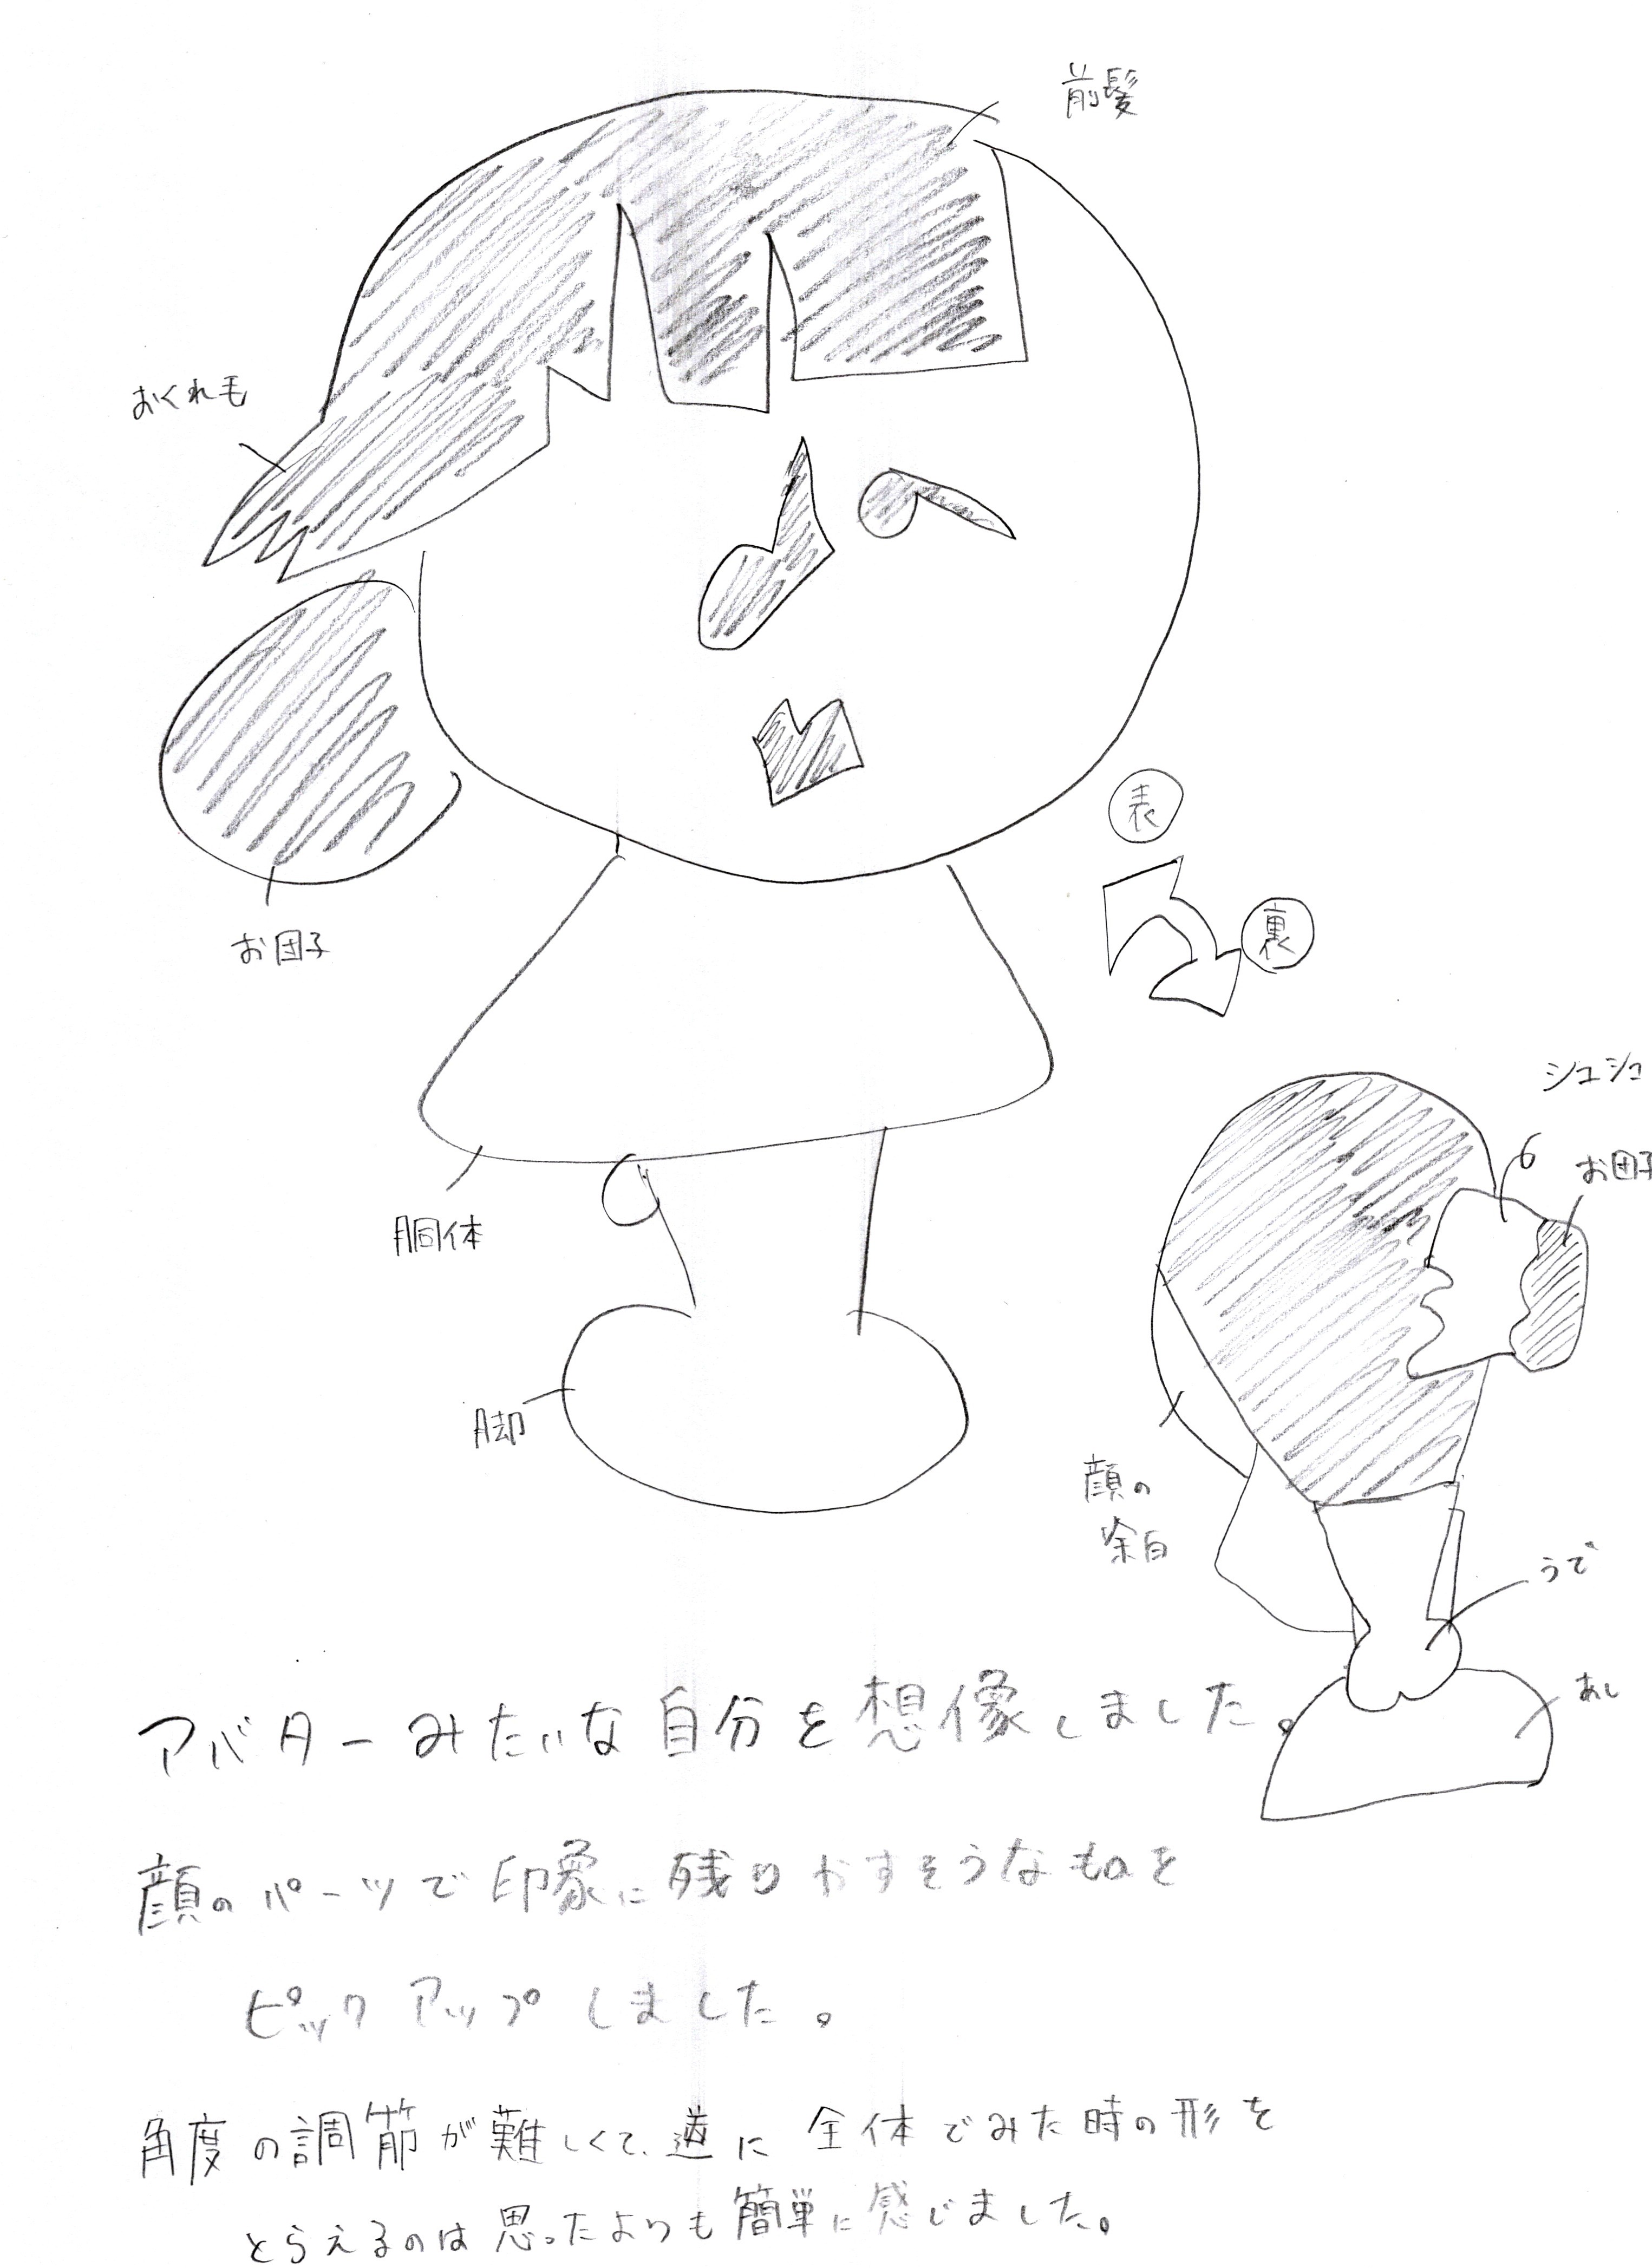 前髪
おくれ毛
お団子
表
裏
シュシュ
お団子
胴体
脚
顔の
余白
うで
あし
アバターみたいな自分を想像しました。
顔のパーツで印象に残りやすそうなものを
ピックアップしました。
角度の調節が難しくて、逆に全体でみた時の形を
とらえるのは思ったよりも簡単に感じました。